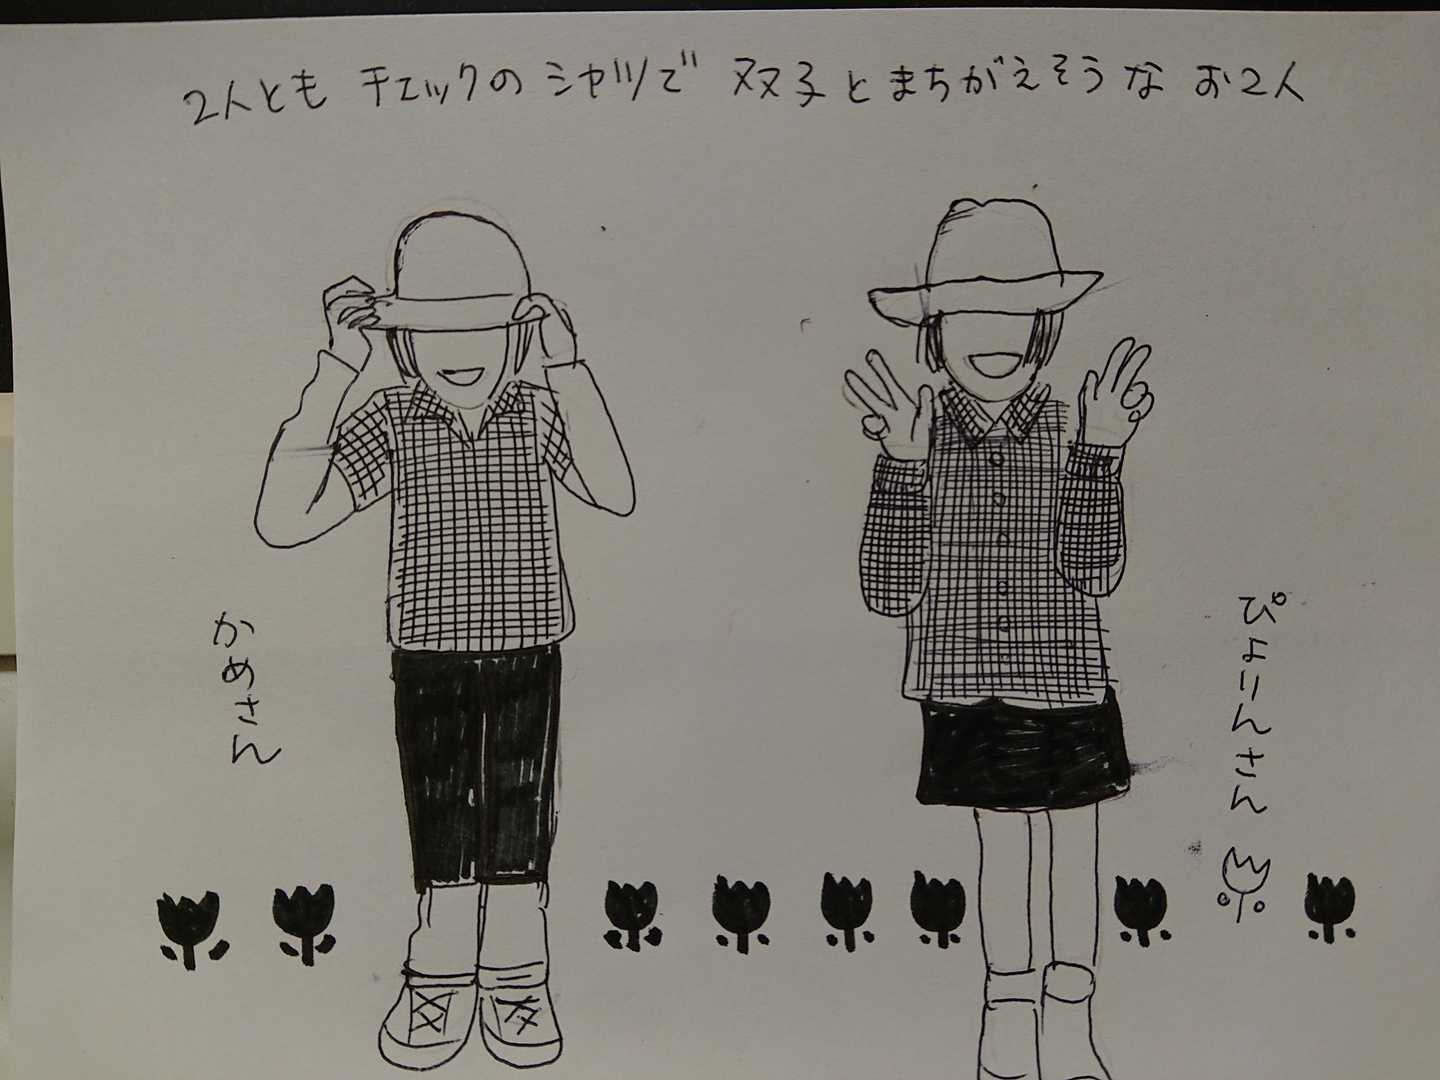 2人とも チェックの シャツで 双子と まちがえそうな お2人
かめさん
ぴょこんさん